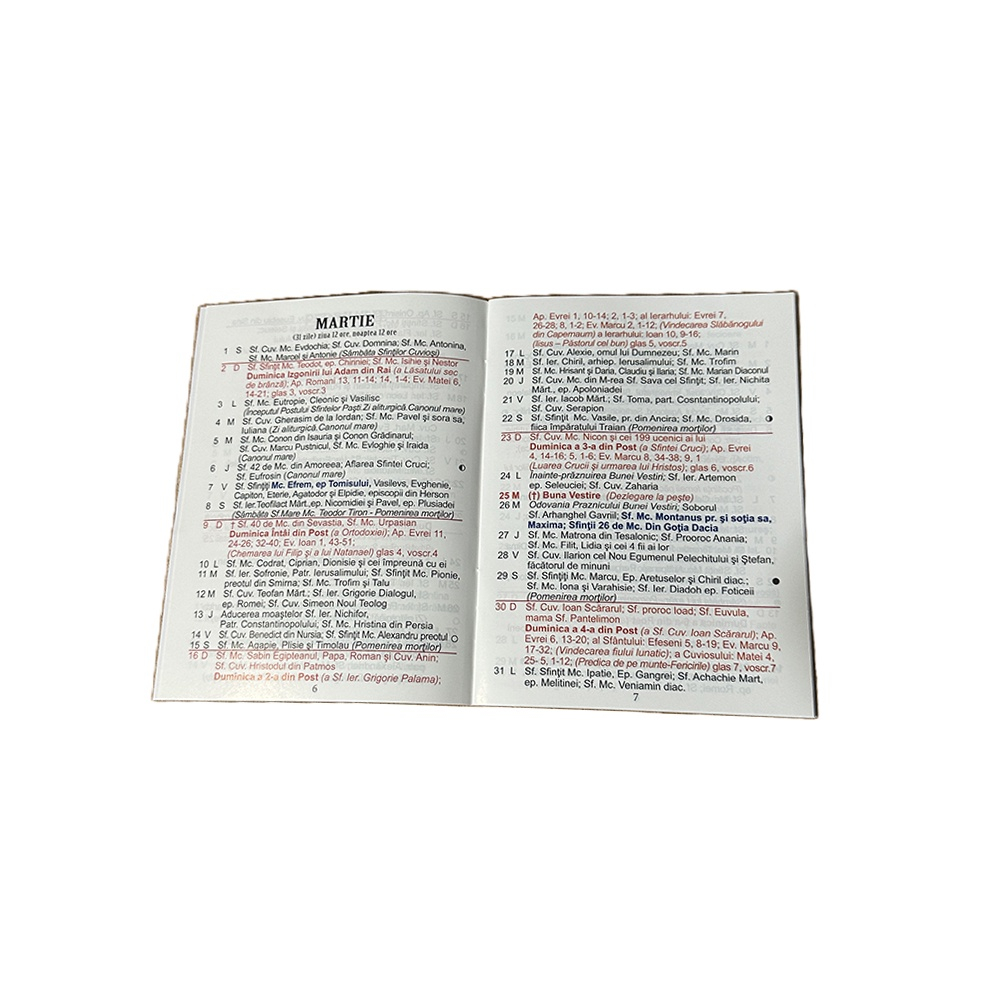 MARTIE
(31 zile) ziua 12 ore, noaptea 12 ore
1 S Sf. Cuv. Mc. Evdochia; Sf. Cuv. Domnina; Sf. Mc. Antonina,
Sf. Mc. Marcel şi Antonie (Sâmbăta Sfinţilor Cuvioşi)
2 D Sf. Sfinţit Mc. Teodot, ep. Chiriniei; Sf. Mc. Isihie şi Nestor
Duminica Izgonirii lui Adam din Rai (a Lăsatului sec
de brânză); Ap. Romani 13, 11-14; 14, 1-4; Ev. Matei 6,
14-21; glas 3, voscr.3
3 L Sf. Mc. Eutropie, Cleonic şi Vasilisc
(Începutul Postului Sfintelor Paşti.Zi aliturgică.Canonul mare)
4 M Sf. Cuv. Gherasim de la Iordan; Sf. Mc. Pavel şi sora sa,
Iuliana (Zi aliturgică.Canonul mare)
5 M Sf. Mc. Conon din Isauria şi Conon Grădinarul;
Sf. Cuv. Marcu Pustnicul, Sf. Mc. Evloghie şi Iraida
(Canonul mare)
6 J Sf. 42 de Mc. din Amoreea; Aflarea Sfintei Cruci;
Sf. Eufrosin (Canonul mare)
7 V Sf. Sfinţiţi Mc. Efrem, ep Tomisului, Vasilevs, Evghenie,
Capiton, Eterie, Agatodor şi Elpidie, episcopii din Herson
8 S Sf. Ier.Teofilact Mărt.,ep. Nicomidiei şi Pavel, ep. Plusiadei
(Sâmbăta Sf.Mare Mc. Teodor Tiron - Pomenirea morţilor)
9 D † Sf. 40 de Mc. din Sevastia, Sf. Mc. Urpasian
Duminica Întâi din Post (a Ortodoxiei); Ap. Evrei 11,
24-26; 32-40; Ev. Ioan 1, 43-51;
(Chemarea lui Filip şi a lui Natanael) glas 4, voscr.4
10 L Sf. Mc. Codrat, Ciprian, Dionisie şi cei împreună cu ei
11 M Sf. Ier. Sofronie, Patr. Ierusalimului; Sf. Sfinţit Mc. Pionie,
preotul din Smirna; Sf. Mc. Trofim şi Talu
12 M Sf. Cuv. Teofan Mărt.; Sf. Ier. Grigorie Dialogul,
ep. Romei; Sf. Cuv. Simeon Noul Teolog
13 J Aducerea moaştelor Sf. Ier. Nichifor,
Patr. Constantinopolului; Sf. Mc. Hristina din Persia
14 V Sf. Cuv. Benedict din Nursia; Sf. Sfinţit Mc. Alexandru preotul
15 S Sf. Mc. Agapie, Plisie şi Timolau (Pomenirea morţilor)
16 D Sf. Mc. Sabin Egipteanul, Papa, Roman şi Cuv. Anin;
Sf. Cuv. Hristodul din Patmos
Duminica a 2-a din Post (a Sf. Ier. Grigorie Palama);
6
Ap. Evrei 1, 10-14; 2, 1-3; al Ierarhului: Evrei 7,
26-28; 8, 1-2; Ev. Marcu 2, 1-12; (Vindecarea Slăbănogului
din Capernaum) a Ierarhului: Ioan 10, 9-16;
(Iisus – Păstorul cel bun) glas 5, voscr.5
17 L Sf. Cuv. Alexie, omul lui Dumnezeu; Sf. Mc. Marin
18 M Sf. Ier. Chiril, arhiep. Ierusalimului; Sf. Mc. Trofim
19 M Sf. Mc. Hrisant şi Daria, Claudiu şi Ilaria; Sf. Mc. Marian Diaconul
20 J Sf. Cuv. Mc. din M-rea Sf. Sava cel Sfinţit; Sf. Ier. Nichita
Mărt., ep. Apoloniadei
21 V Sf. Ier. Iacob Mărt.; Sf. Toma, part. Cosntantinopolului;
Sf. Cuv. Serapion
22 S Sf. Sfinţit Mc. Vasile, pr. din Ancira; Sf. Mc. Drosida,
fiica împăratului Traian (Pomenirea morţilor)
23 D Sf. Cuv. Mc. Nicon şi cei 199 ucenici ai lui
Duminica a 3-a din Post (a Sfintei Cruci); Ap. Evrei
4, 14-16; 5, 1-6; Ev. Marcu 8, 34-38; 9, 1
(Luarea Crucii şi urmarea lui Hristos); glas 6, voscr.6
24 L Înainte-prăznuirea Bunei Vestiri; Sf. Ier. Artemon
ep. Seleuciei; Sf. Cuv. Zaharia
25 M (†) Buna Vestire (Dezlegare la peşte)
26 M Odovania Praznicului Bunei Vestiri; Soborul
Sf. Arhanghel Gavriil; Sf. Mc. Montanus pr. şi soţia sa,
Maxima; Sfinţii 26 de Mc. Din Goţia Dacia
27 J Sf. Mc. Matrona din Tesalonic; Sf. Prooroc Anania;
Sf. Mc. Filit, Lidia şi cei 4 fii ai lor
28 V Sf. Cuv. Ilarion cel Nou Egumenul Pelechitului şi Ştefan,
făcătorul de minuni
29 S Sf. Sfinţiţi Mc. Marcu, Ep. Aretuselor şi Chiril diac.;
Sf. Mc. Iona şi Varahisie; Sf. Ier. Diadoh ep. Foticeii
(Pomenirea morţilor)
30 D Sf. Cuv. Ioan Scărarul; Sf. proroc Ioad; Sf. Euvula,
mama Sf. Pantelimon
Duminica a 4-a din Post (a Sf. Cuv. Ioan Scărarul); Ap.
Evrei 6, 13-20; al Sfântului: Efeseni 5, 8-19; Ev. Marcu 9,
17-32; (Vindecarea fiului lunatic); a Cuviosului: Matei 4,
25- 5, 1-12; (Predica de pe munte-Fericirile) glas 7, voscr.7
31 L Sf. Sfinţit Mc. Ipatie, Ep. Gangrei; Sf. Achachie Mart,
ep. Melitinei; Sf. Mc. Veniamin diac.
7